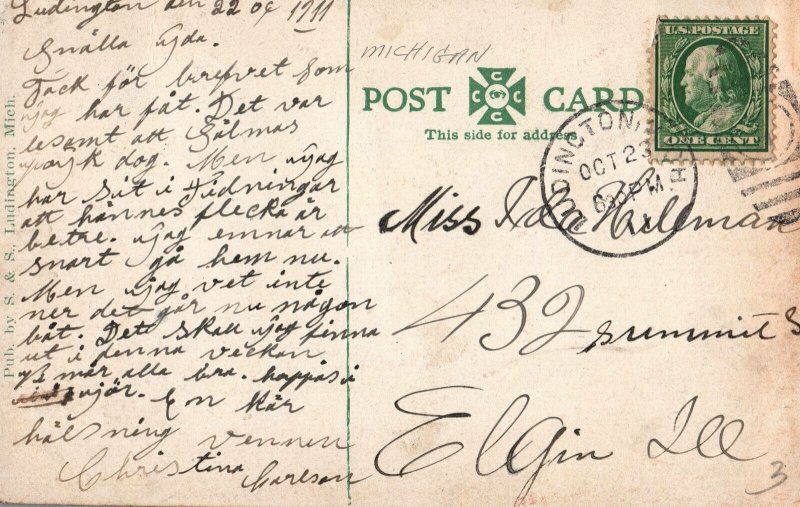 Ludington den 22 oc 1911
Snälla
Tack för brefvet som
jag har fåt. Det var
lesamt att Sälmas
dog. Men ujag
har sit i Tidningar
att hännes flecka är
betre. ujag emnar att
snart gå hem nu.
Men ujag vet inte
ner det går nu någon
båt. Det skall ujag finna
ut i denna veckan
mår alla bra. happas i
ujör. En kär
hälsning vennen
Christina Carlson
Pub. by S. & S., Ludington, Mich.
MICHIGAN
POST CARD
This side for address
U.S. POSTAGE
ONE CENT
OCT 23
PM
Miss Ida
432 summit S
Elgin Ill
3